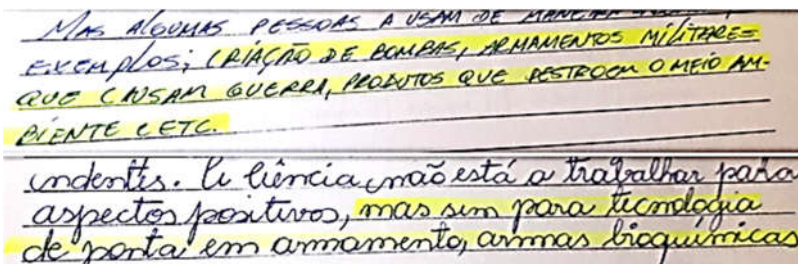 MAS ALGUMAS PESSOAS A USAM DE MANEIRA
EXEMPLOS; CRIAÇÃO DE BOMBAS, ARMAMENTOS MILITARES
QUE CAUSAM GUERRA, PRODUTOS QUE DESTROEM O MEIO AM-
BIENTE E ETC.
indentes. A ciência, não está a trabalhar para
aspectos positivos, mas sim para tecnologia
de ponta em armamento, armas bioquímicas